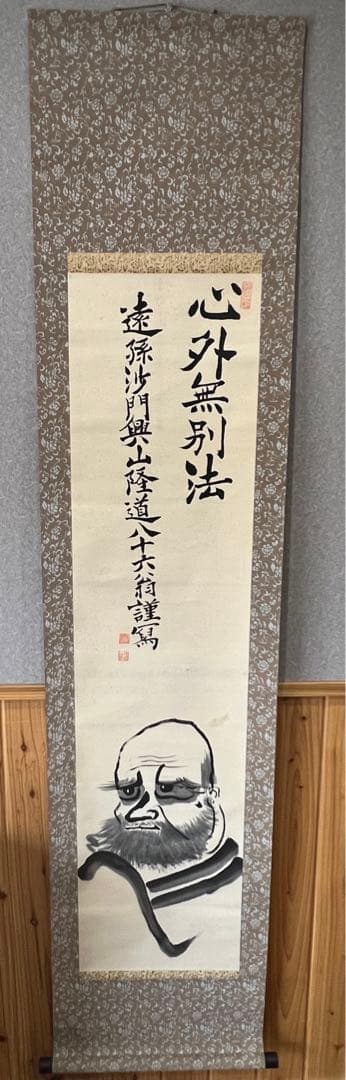 心外無別法
遠孫沙門興山隆道八十六翁謹寫